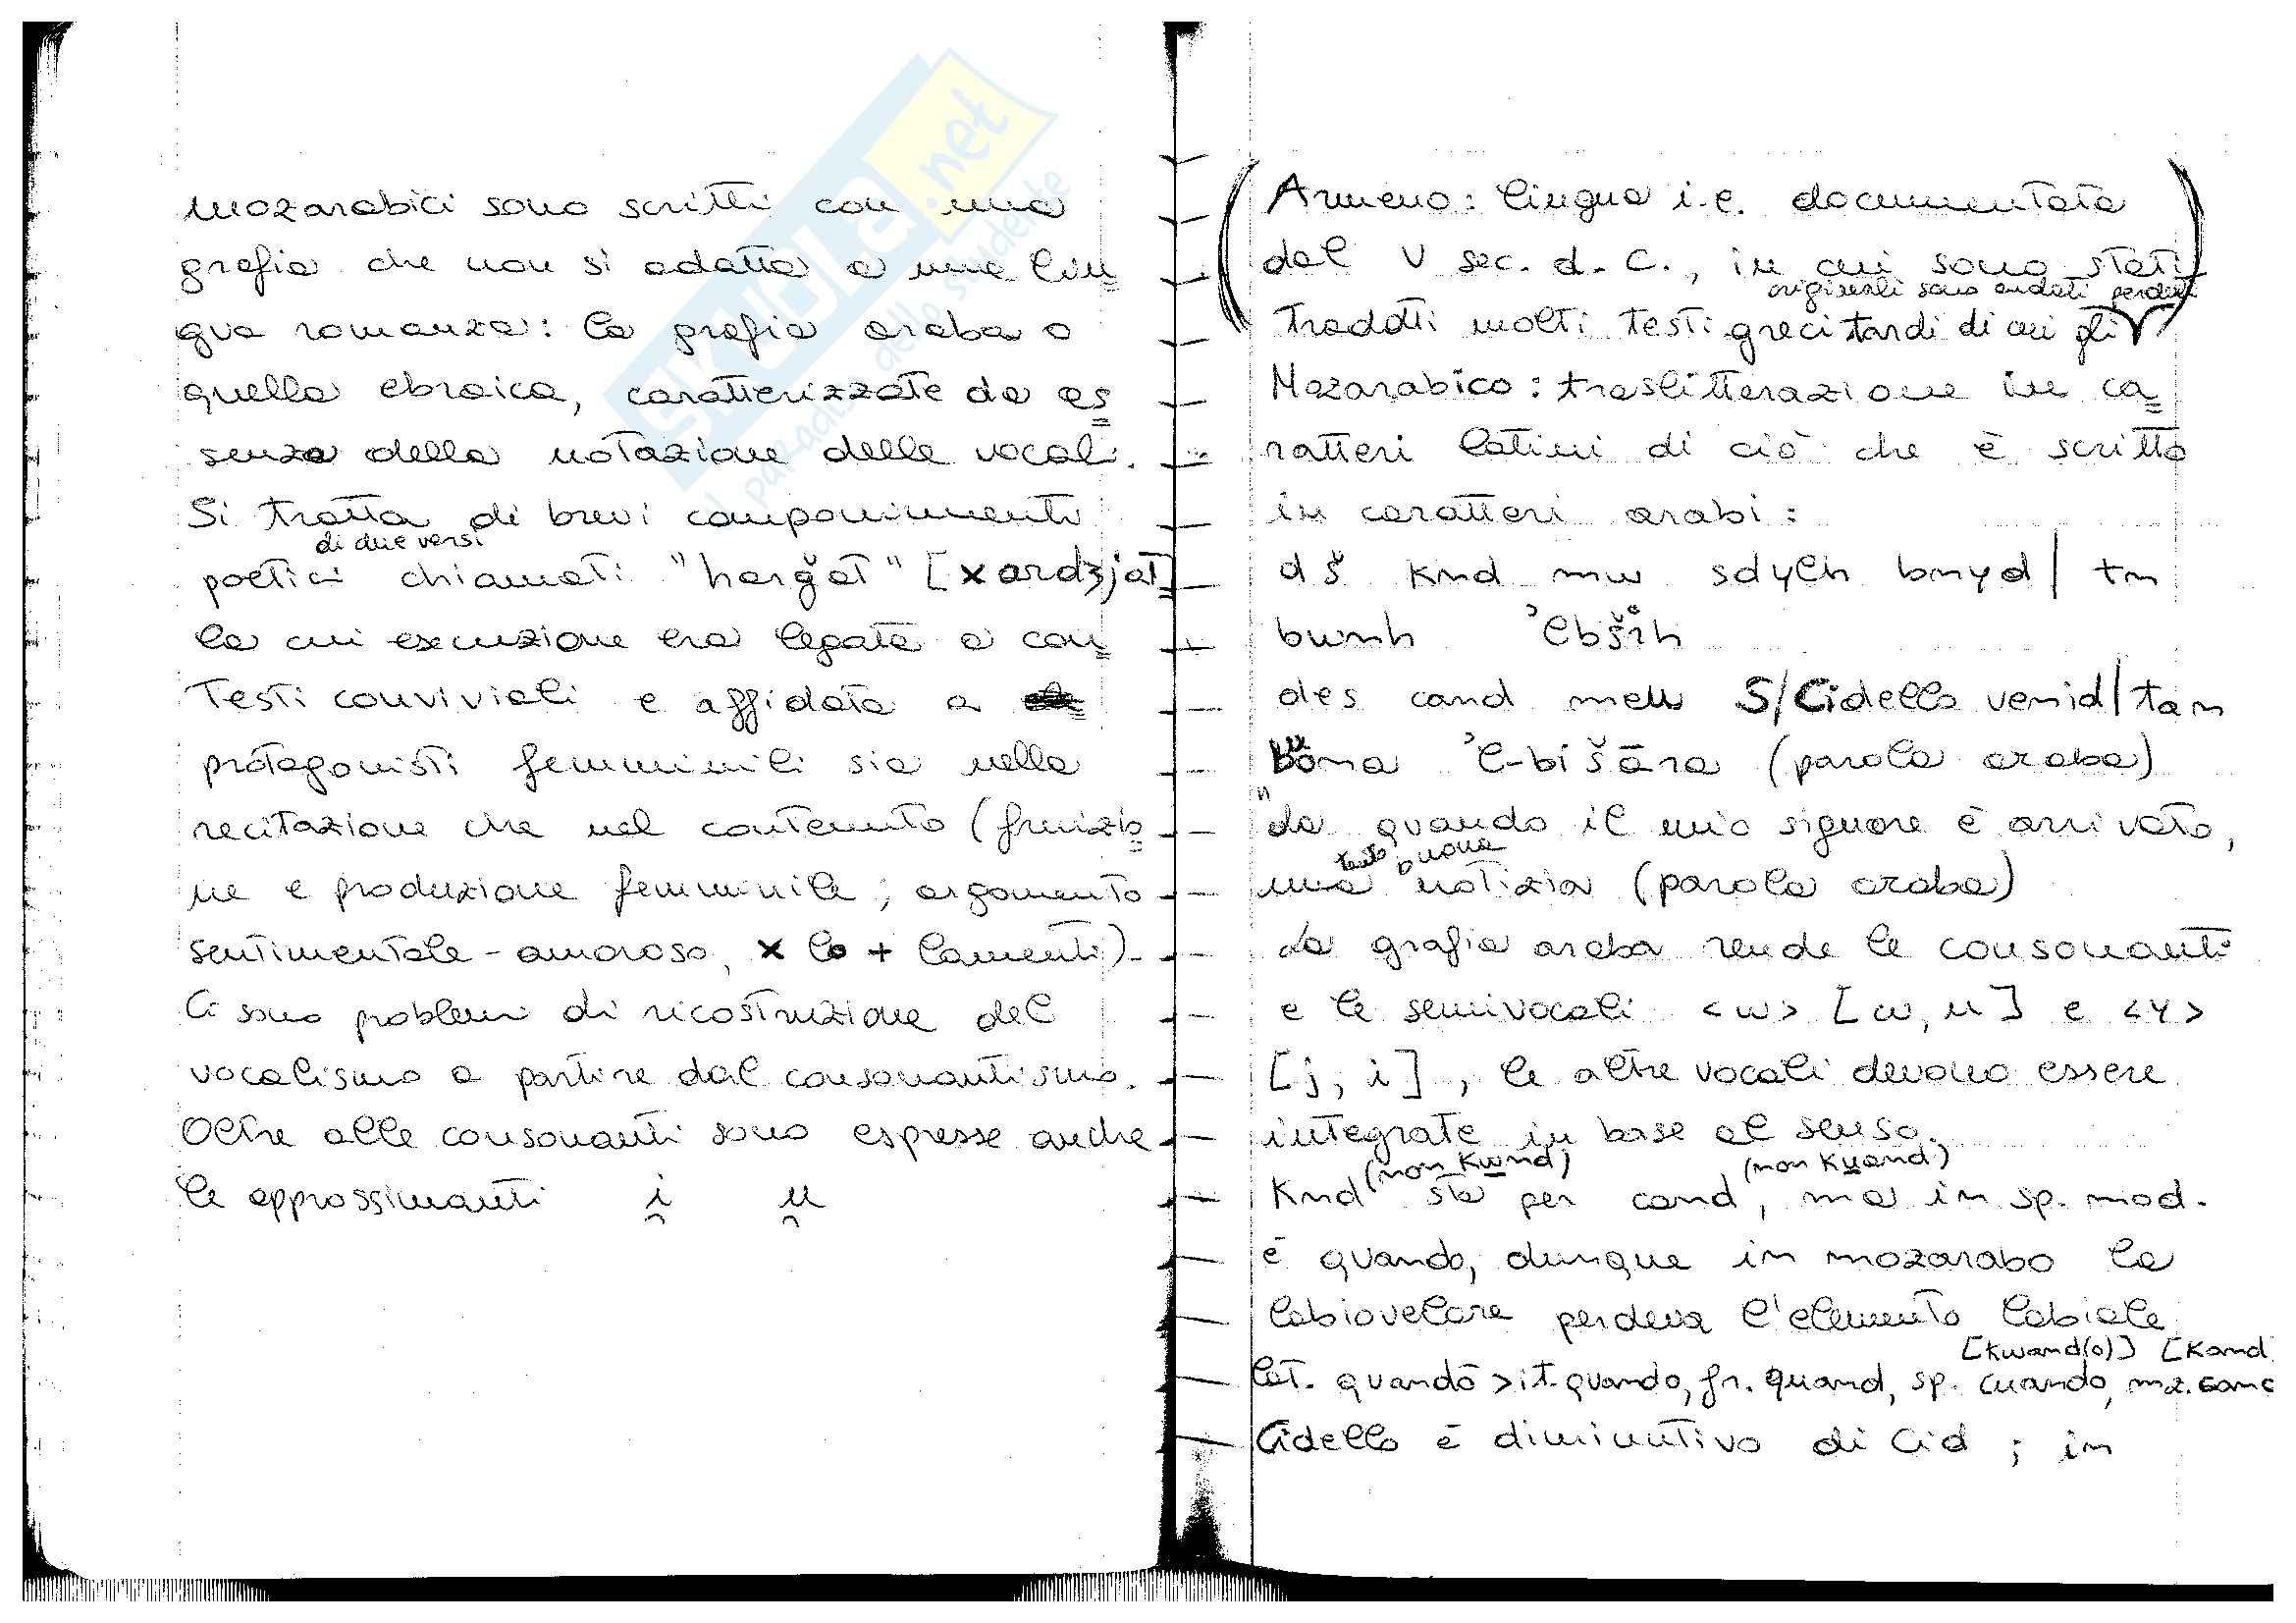 mozarabici sono scritti con una
grafia che non si adatta a una lin
gua romanza: la grafia araba o
quella ebraica, caratterizzate da as
senza della notazione delle vocali.
Si tratta di brevi componimenti
di due versi
poetici chiamati "harğat" [xardzjat]
la cui esecuzione era legata a con
testi conviviali e affidata a
protagonisti femminili sia nella
recitazione che nel contenuto (fruizio
ne e produzione femminile; argomento
sentimentale-amoroso, x lo + lamenti).
Ci sono problemi di ricostruzione del
vocalismo a partire dal consonantismo.
Oltre alle consonanti sono espresse anche
le approssimanti i̯ u̯
(Armeno: lingua i.e. documentata
dal V sec. d.C., in cui sono stati
originali sono andati perduti
tradotti molti testi greci tardi di cui gli V)
Mozarabico: traslitterazione in ca
ratteri latini di ciò che è scritto
in caratteri arabi:
dš knd mw sdylh bnyd / tn
bwnh
des cand meu S/Cidello venid / tan
bona 'l-bišāra (parola araba)
"da quando il mio signore è arrivato,
buona
una notizia (parola araba)
La grafia araba rende le consonanti
e le semivocali <w> [w, u] e <y>
[j, i], le altre vocali devono essere
integrate in base al senso.
(non kwnd) (non kuand)
Knd sta per cand, ma in sp. mod.
è quando, dunque in mozarabo la
labiovelare perdeva l'elemento labiale
[kwand(o)] [Kand
lat. quandō > it. quando, fr. quand, sp. cuando, mz. canc
Cidello è diminutivo di Cid; in
SKUOLA.net
il paradiso dello studente